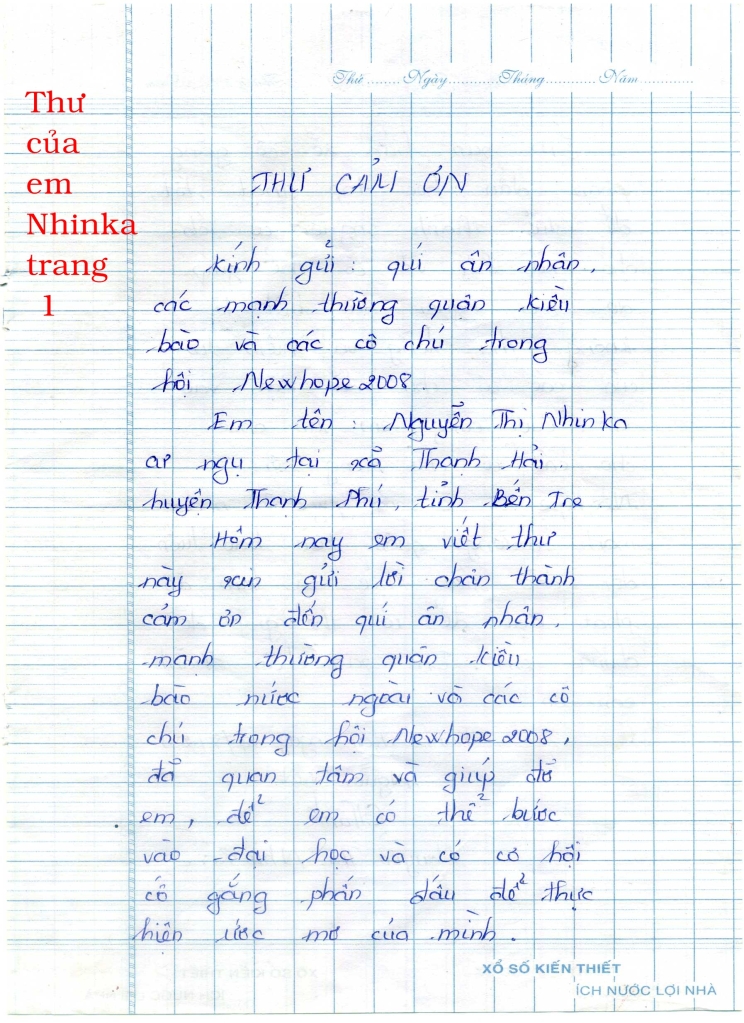 Thứ ........ Ngày ............ Tháng ............ Năm .............
Thư
của
em
Nhinka
trang
1
THƯ CẢM ƠN
Kính gửi : quí ân nhân,
các mạnh thường quân kiều
bào và các cô chú trong
hội Newhope 2008.
Em tên : Nguyễn Thị Nhinka
cư ngụ tại xã Thạnh Hải.
huyện Thạnh Phú, tỉnh Bến Tre.
Hôm nay em viết thư
này xin gửi lời chân thành
cảm ơn đến quí ân nhân,
mạnh thường quân kiều
bào nước ngoài và các cô
chú trong hội Newhope 2008,
đã quan tâm và giúp đỡ
em, để em có thể bước
vào đại học và có cơ hội
cố gắng phấn đấu để thực
hiện ước mơ của mình.
XỔ SỐ KIẾN THIẾT
ÍCH NƯỚC LỢI NHÀ